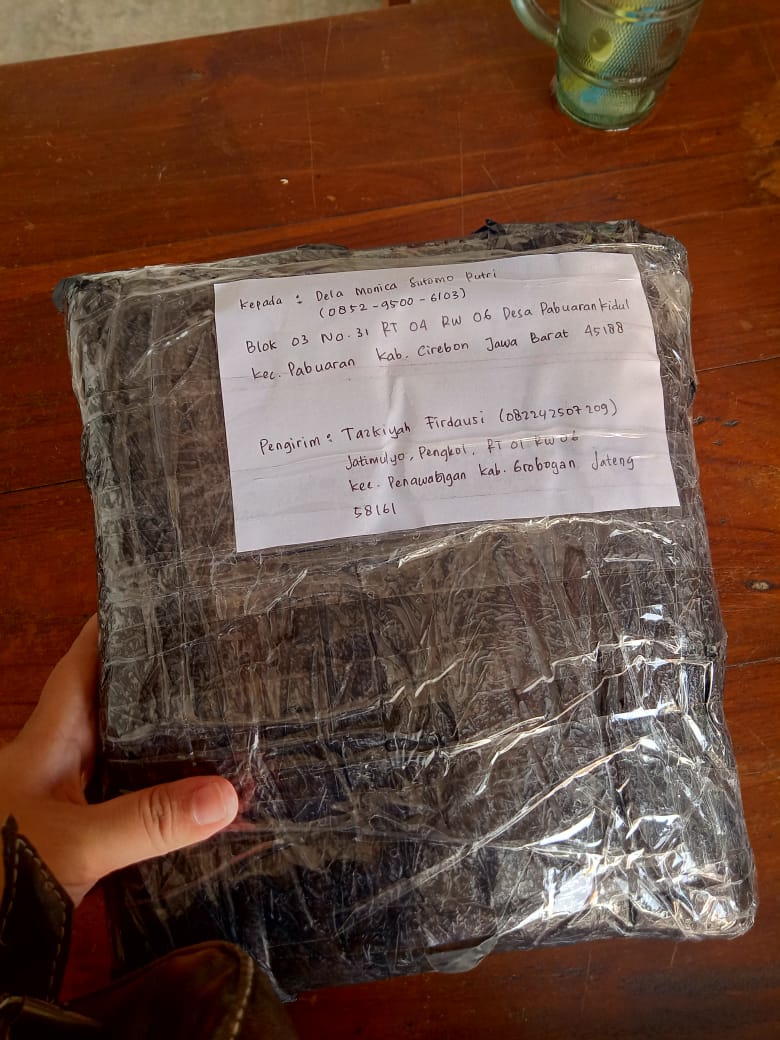 Kepada : Dela Monica Sutomo Putri
(0852-9500-6103)
Blok 03 No.31 RT 04 RW 06 Desa Pabuaran Kidul
Kec. Pabuaran Kab. Cirebon Jawa Barat 45188
Pengirim : Tazkiyah Firdausi (082242507209)
Jatimulyo, Pengkol, RT 01 RW 06
Kec. Penawangan Kab. Grobogan Jateng
58161